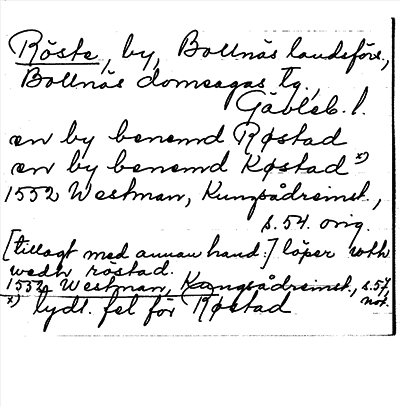 Röste, by, Bollnäs landsförs.,
Bollnäs domsagas tg.,
Gävleb. l.
en by benemd Røstad
en by benemd Køstad x)
1552 Westman, Kungsådreinst.,
s. 54. orig.
[tillagt med annan hand:] löper wth
wedh röstad.
1552 Westman, Kungsådreinst., s. 57, not.
x) tydl. fel för Røstad